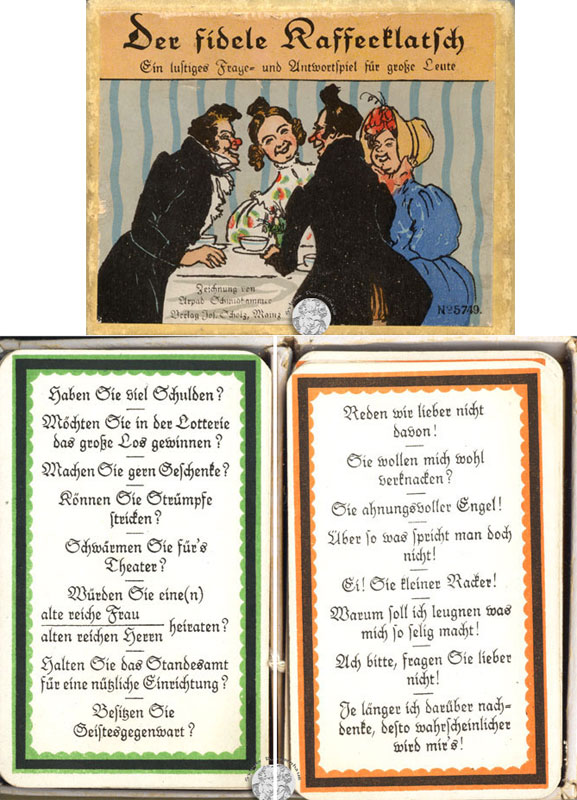 Der fidele Kaffeeklatsch
Ein lustiges Frage- und Antwortspiel für große Leute
Zeichnung von
Arpad Schmidhammer
Verlag Jos. Scholz, Mainz
No 5749.
Haben Sie viel Schulden?
Möchten Sie in der Lotterie
das große Los gewinnen?
Machen Sie gern Geschenke?
Können Sie Strümpfe
stricken?
Schwärmen Sie für's
Theater?
Würden Sie eine(n)
alte reiche Frau
alten reichen Herrn heiraten?
Halten Sie das Standesamt
für eine nützliche Einrichtung?
Besitzen Sie
Geistesgegenwart?
Reden wir lieber nicht
davon!
Sie wollen mich wohl
verknacken?
Sie ahnungsvoller Engel!
Über so was spricht man doch
nicht!
Ei! Sie kleiner Racker!
Warum soll ich leugnen was
mich so selig macht!
Ach bitte, fragen Sie lieber
nicht!
Je länger ich darüber nach-
denke, desto wahrscheinlicher
wird mir's!